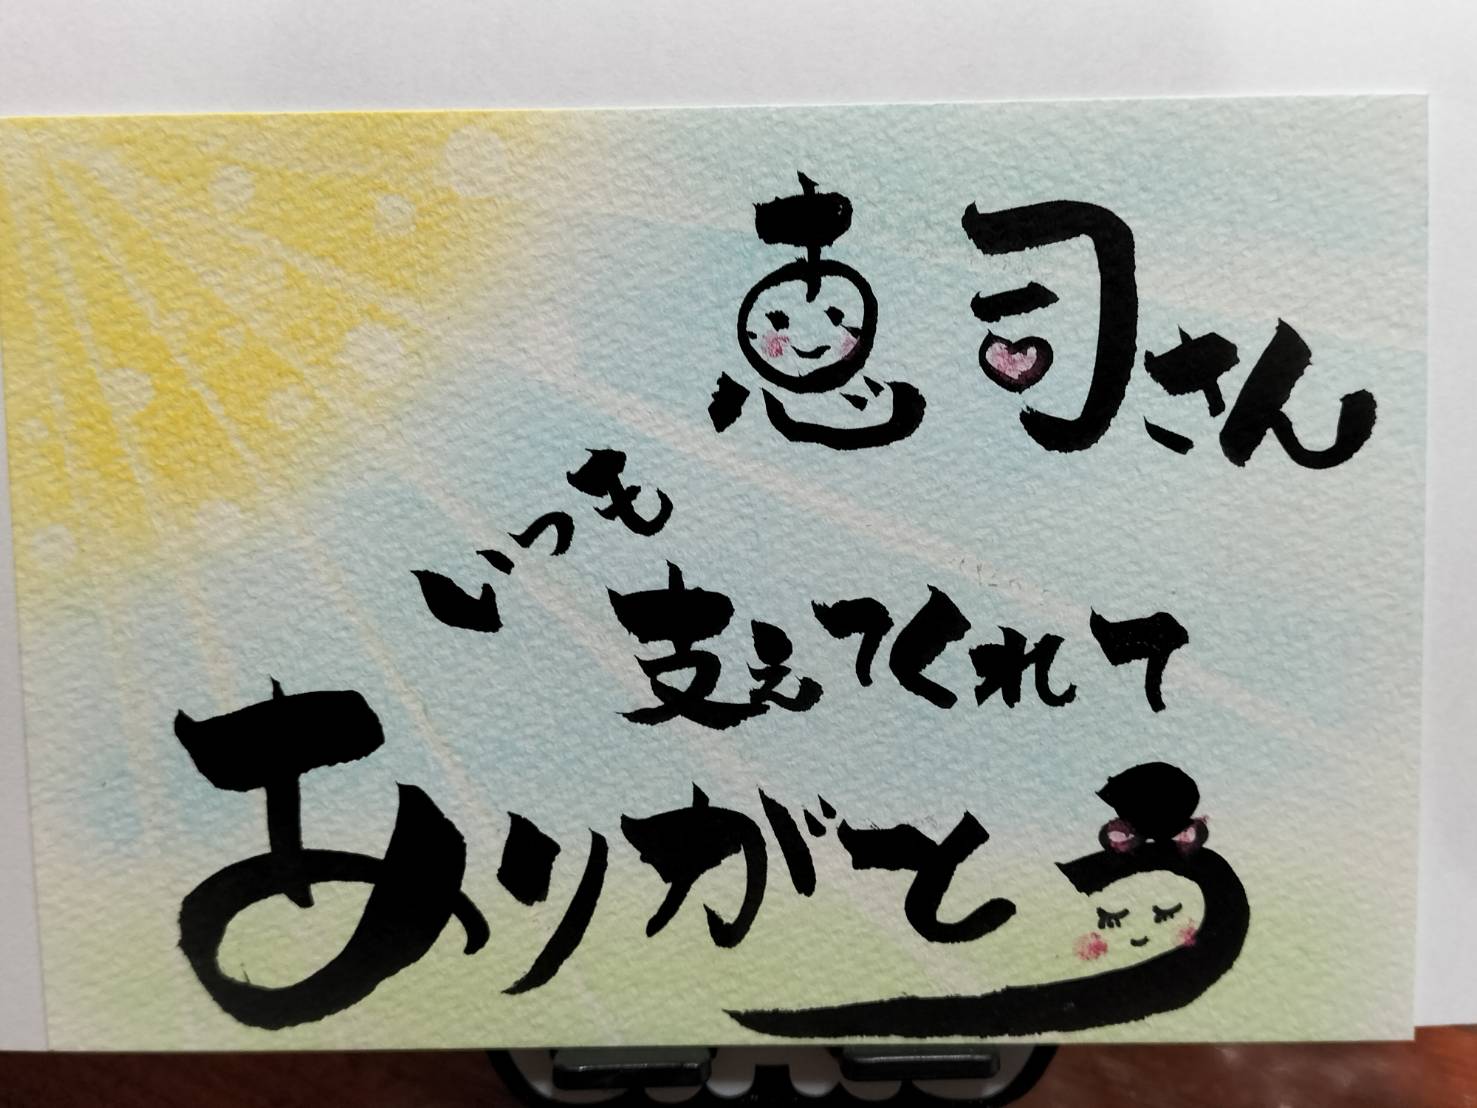 恵司さん
いつも
支えてくれて
ありがとう